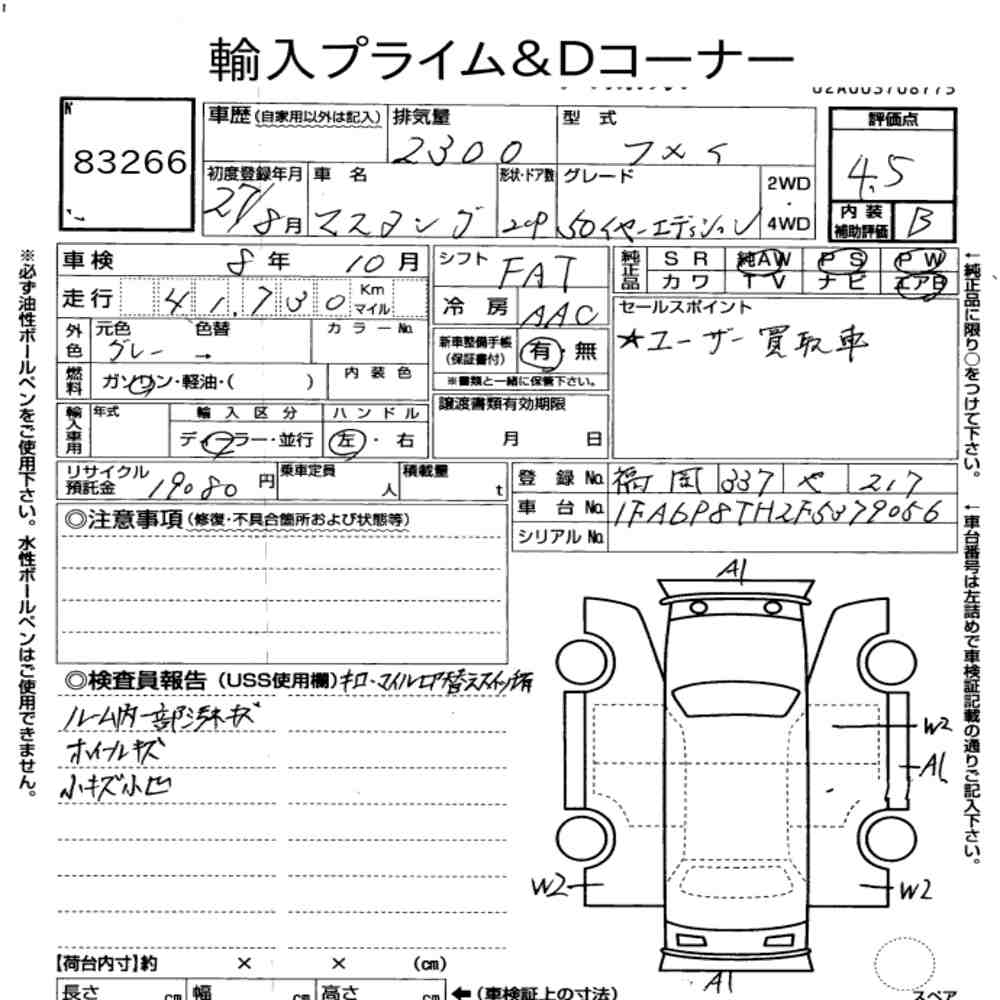 輸入プライム&Dコーナー
83266
車歴(自家用以外は記入) 排気量 2300 型式 フメイ
評価点 4.5
初度登録年月 27/8月 車名 マスタング 形状・ドア数 2クP グレード 50イヤーエディション 2WD・4WD
内装補助評価 B
車検 8年 10月 シフト FAT
走行 41,730 Km マイル 冷房 AAC
純正品 SR 純AW PS PW
カワ TV ナビ エアB
外色 元色 グレー 色替 → カラーNo.
新車整備手帳(保証書付) 有・無
※書類と一緒に保管下さい。
セールスポイント
★ユーザー買取車
燃料 ガソリン・軽油・( ) 内装色
譲渡書類有効期限 月 日
輸入車用 年式 輸入区分 ディーラー・並行 ハンドル 左・右
リサイクル預託金 19080円 乗車定員 人 積載量 t
登録No. 福岡 337 や 217
車台No. 1FA6P8TH2F5379056
シリアルNo.
◎注意事項(修復・不具合箇所および状態等)
◎検査員報告(USS使用欄)キロ・マイル切替えスイッチ有
ルーム内一部汚れキズ
ホイールキズ
小キズ小凹
A1
W2
A1
W2
W2
A1
【荷台内寸】約 × × (cm)
長さ cm 幅 cm 高さ cm ←(車検証上の寸法)
スペア
※必ず油性ボールペンをご使用下さい。水性ボールペンはご使用できません。
←純正品に限り○をつけて下さい。
←車台番号は左詰めで車検証記載の通りご記入下さい。